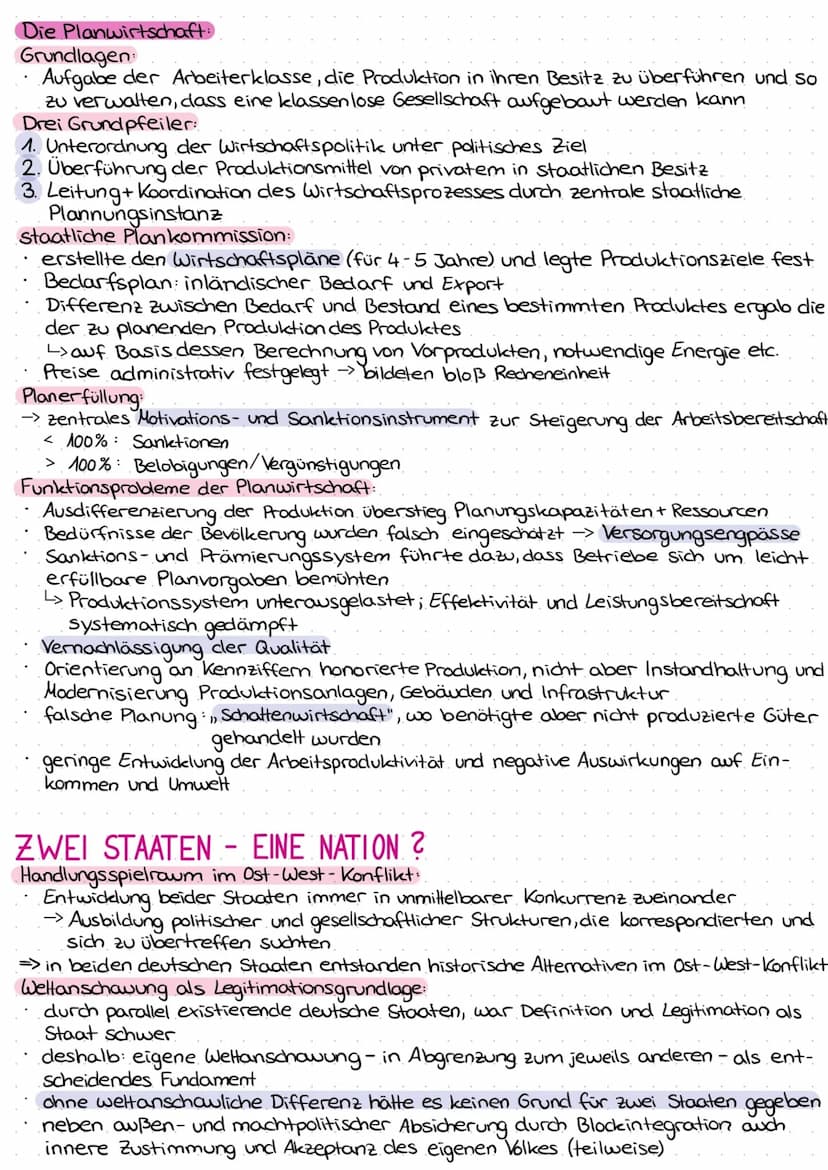 Die Planwirtschaft:
Grundlagen:
· Aufgabe der Arbeiterklasse, die Produktion in ihren Besitz zu überführen und so
zu verwalten, dass eine klassenlose Gesellschaft aufgebaut werden kann
Drei Grundpfeiler:
1. Unterordnung der Wirtschaftspolitik unter politisches Ziel
2. Überführung der Produktionsmittel von privatem in staatlichen Besitz
3. Leitung + Koordination des Wirtschaftsprozesses durch zentrale staatliche
Plannungsinstanz
staatliche Plankommission:
· erstellte den Wirtschaftspläne (für 4-5 Jahre) und legte Produktionsziele fest
· Bedarfsplan: inländischer Bedarf und Export
· Differenz zwischen Bedarf und Bestand eines bestimmten Produktes ergab die
der zu planenden Produktion des Produktes
↳ auf Basis dessen Berechnung von Vorprodukten, notwendige Energie etc.
· Preise administrativ festgelegt → bildeten bloß Recheneinheit
Planerfüllung:
→ zentrales Motivations- und Sanktionsinstrument zur Steigerung der Arbeitsbereitschaft
< 100% : Sanktionen
> 100% : Belobigungen/Vergünstigungen
Funktionsprobleme der Planwirtschaft:
· Ausdifferenzierung der Produktion überstieg Planungskapazitäten + Ressourcen
· Bedürfnisse der Bevölkerung wurden falsch eingeschätzt → Versorgungsengpässe
· Sanktions- und Prämierungssystem führte dazu, dass Betriebe sich um leicht
erfüllbare Planvorgaben bemühten
↳ Produktionssystem unterausgelastet; Effektivität und Leistungsbereitschaft
systematisch gedämpft
· Vernachlässigung der Qualität
· Orientierung an Kennziffern honorierte Produktion, nicht aber Instandhaltung und
Modernisierung Produktionsanlagen, Gebäuden und Infrastruktur
· falsche Planung: „Schattenwirtschaft", wo benötigte aber nicht produzierte Güter
gehandelt wurden
· geringe Entwicklung der Arbeitsproduktivität und negative Auswirkungen auf Ein-
kommen und Umwelt
ZWEI STAATEN - EINE NATION ?
Handlungsspielraum im Ost-West-Konflikt:
· Entwicklung beider Staaten immer in unmittelbarer Konkurrenz zueinander
→ Ausbildung politischer und gesellschaftlicher Strukturen, die korrespondierten und
sich zu übertreffen suchten
⇒ in beiden deutschen Staaten entstanden historische Alternativen im Ost-West-Konflikt
Weltanschauung als Legitimationsgrundlage:
· durch parallel existierende deutsche Staaten, war Definition und Legitimation als
Staat schwer
· deshalb: eigene Weltanschauung - in Abgrenzung zum jeweils anderen - als ent-
scheidendes Fundament
· ohne weltanschauliche Differenz hätte es keinen Grund für zwei Staaten gegeben
· neben außen- und machtpolitischer Absicherung durch Blockintegration auch
innere Zustimmung und Akzeptanz des eigenen Volkes (teilweise)